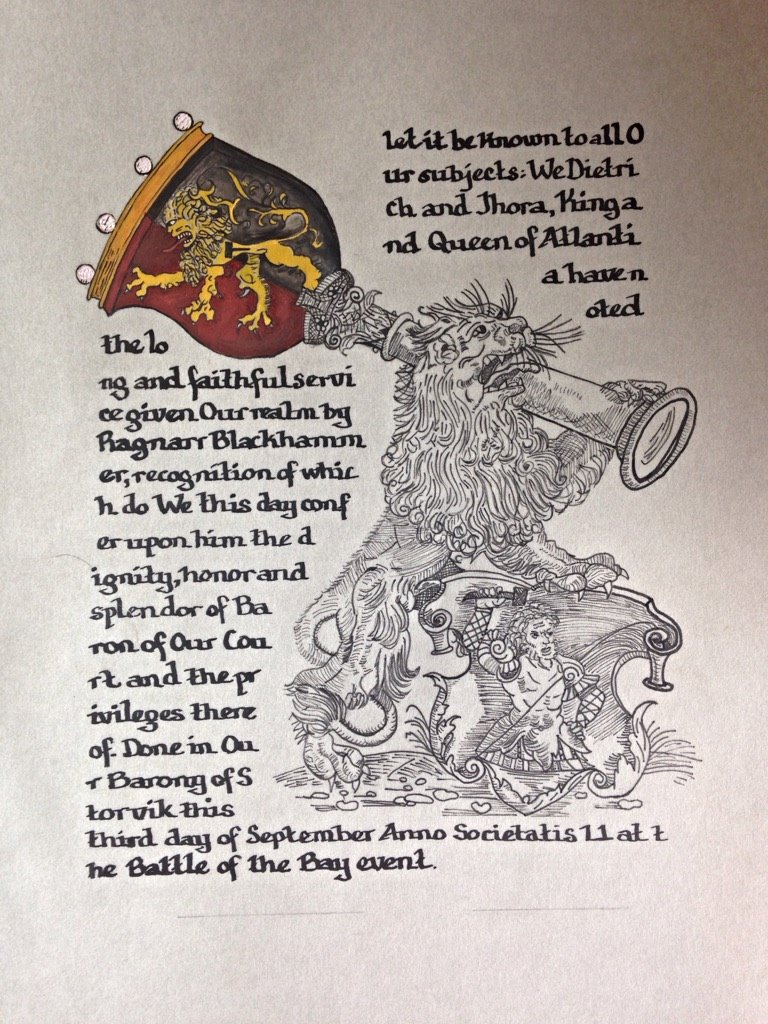 let it be known to all O
ur subjects: We Dietri
ch and Thora, King a
nd Queen of Atlanti
a have n
oted
the lo
ng and faithful servi
ce given Our realm by
Ragnarr Blackhamm
er, recognition of whic
h do We this day conf
er upon him the d
ignity, honor and
splendor of Ba
ron of Our Cou
rt and the pr
ivileges there
of. Done in Ou
r Barony of S
torvik this
third day of September Anno Societatis 11 at t
he Battle of the Bay event.